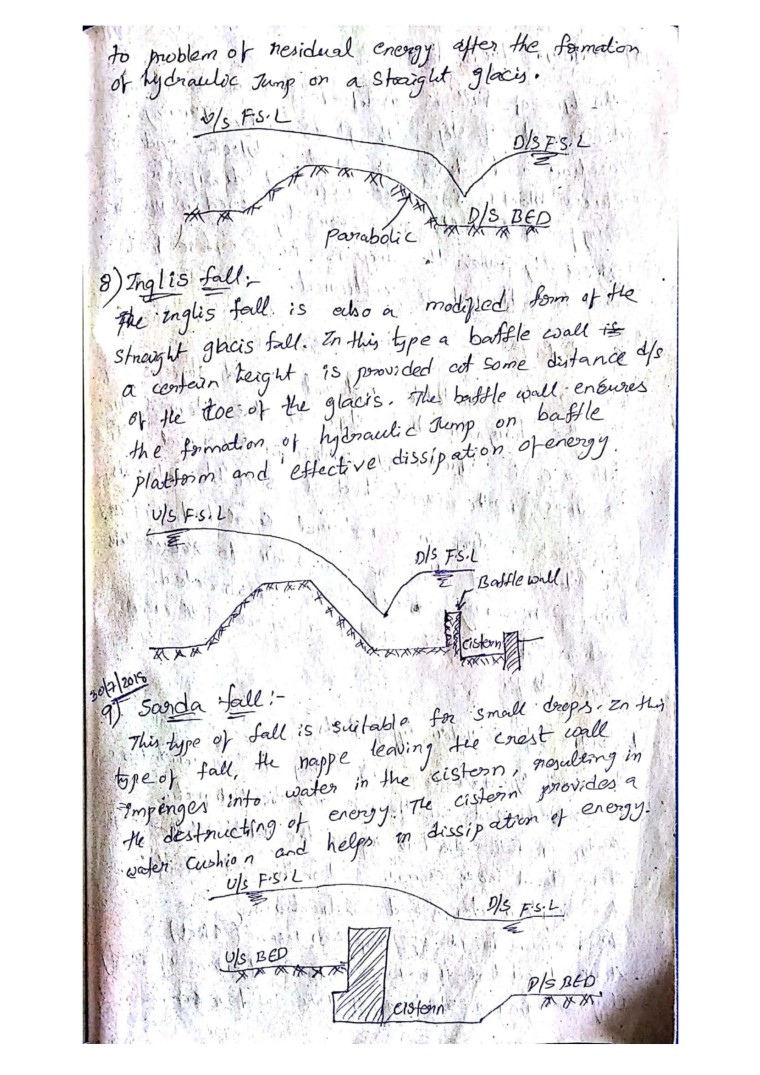 to problem of residual energy after the formation
of hydraulic Jump on a Straight glacis.
U/S F.S.L
D/S F.S.L
D/S BED
Parabolic
8) Inglis fall:-
The inglis fall is also a modified form of the
straight glacis fall. In this type a baffle wall
a certain height is provided at some distance d/s
of the toe of the glacis. The baffle wall ensures
the formation of hydraulic Jump on baffle
platform and effective dissipation of energy.
U/S F.S.L
D/S F.S.L
Baffle wall
cistern
30/7/2018
9) Sarda fall:-
This type of fall is suitable for small drops. In this
type of fall, the nappe leaving the crest wall
impinges into water in the cistern, resulting in
the destructing of energy. The cistern provides a
water cushion and helps in dissipation of energy.
U/S F.S.L
D/S F.S.L
U/S BED
D/S BED
cistern